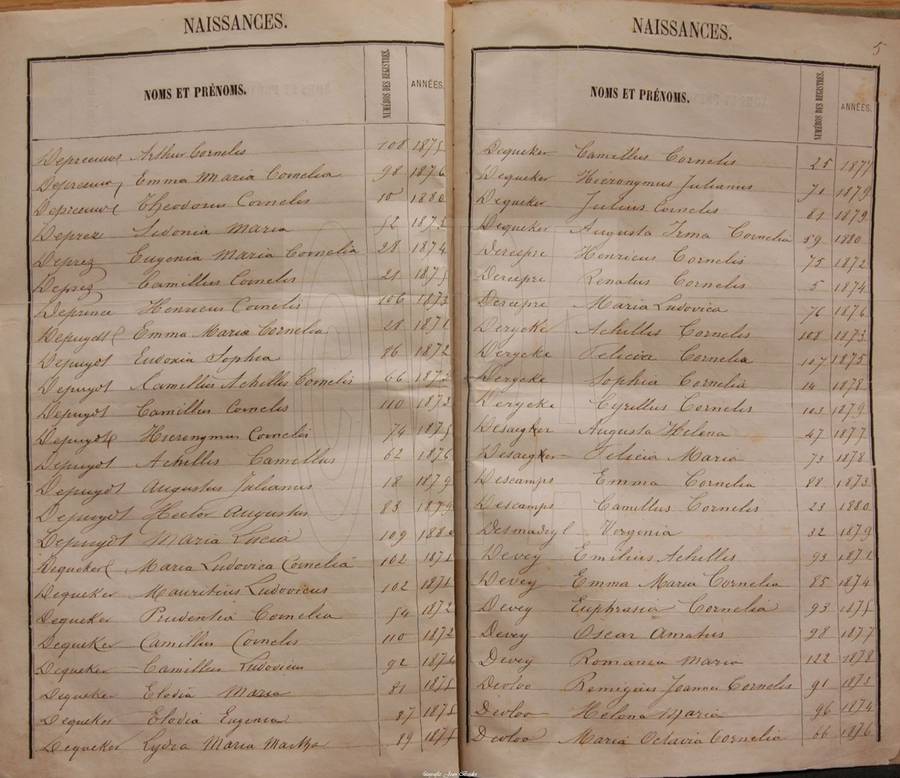 NAISSANCES.
NOMS ET PRÉNOMS. NUMÉROS DES REGISTRES. ANNÉES.
Depreeuw Arthur Cornelis 108 1875
Depreeuw Emma Maria Cornelia 98 1876
Depreeuw Theodorus Cornelis 10 1880
Deprez Sidonia Maria 52 1873
Deprez Eugenia Maria Cornelia 28 1874
Deprez Camillus Cornelis 21 1875
Deprince Henricus Cornelis 106 1873
Depuydt Emma Maria Cornelia 28 1871
Depuydt Eudoxia Sophia 86 1872
Depuydt Camillus Achilles Cornelis 66 1872
Depuydt Camillus Cornelis 110 1873
Depuydt Hieronymus Cornelis 74 1875
Depuydt Achillis Camillus 62 1876
Depuydt Augustus Julianus 18 1879
Depuydt Hector Augustus 83 1879
Depuydt Maria Lucia 109 1880
Dequeker Maria Ludovica Cornelia 102 1871
Dequeker Mauritius Ludovicus 102 1871
Dequeker Prudentia Cornelia 54 1872
Dequeker Camillus Cornelis 110 1872
Dequeker Camillus Ludovicus 92 1874
Dequeker Elodia Maria 81 1875
Dequeker Elodia Eugenia 87 1875
Dequeker Lydia Maria Martha 89 1875
NAISSANCES.
5
NOMS ET PRÉNOMS. NUMÉROS DES REGISTRES. ANNÉES.
Dequeker Camillus Cornelis 25 1877
Dequeker Hieronymus Julianus 71 1879
Dequeker Julius Cornelis 81 1879
Dequeker Augusta Irma Cornelia 59 1880
Dereepre Henricus Cornelis 75 1872
Dereepre Renatus Cornelis 5 1874
Dereepre Maria Ludovica 76 1876
Derycke Achillis Cornelis 108 1873
Derycke Felicia Cornelia 107 1875
Derycke Sophia Cornelia 14 1878
Derycke Cyrillus Cornelis 103 1879
Desaegher Augusta Helena 47 1877
Desaegher Felicia Maria 73 1878
Descamps Emma Cornelia 88 1873
Descamps Camillus Cornelis 23 1880
Desmadryl Virginia 32 1879
Devey Emilius Achillis 93 1871
Devey Emma Maria Cornelia 85 1874
Devey Euphrasia Cornelia 93 1875
Devey Oscar Amatus 98 1877
Devey Romania Maria 122 1878
Devloo Remigius Joannes Cornelis 91 1872
Devloo Helena Maria 96 1874
Devloo Maria Octavia Cornelia 66 1876